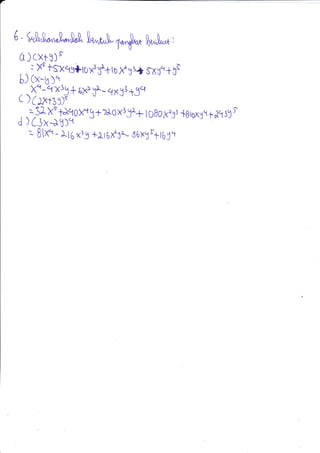 6. Sederhanakanlah bentuk pangkat berikut :
a) (x+y)⁵
= x⁵ +5x⁴y+10x³y²+10x²y³+ 5xy⁴+y⁵
b) (x-y)⁴
x⁴-4x³y+6x²y²-4xy³+y⁴
c) (2x+3y)⁵
= 32x⁵+240x⁴y+720x³y²+1080x²y³+810xy⁴+243y⁵
d) (3x-2y)⁴
= 81x⁴-216x³y+216x²y²-96xy³+16y⁴